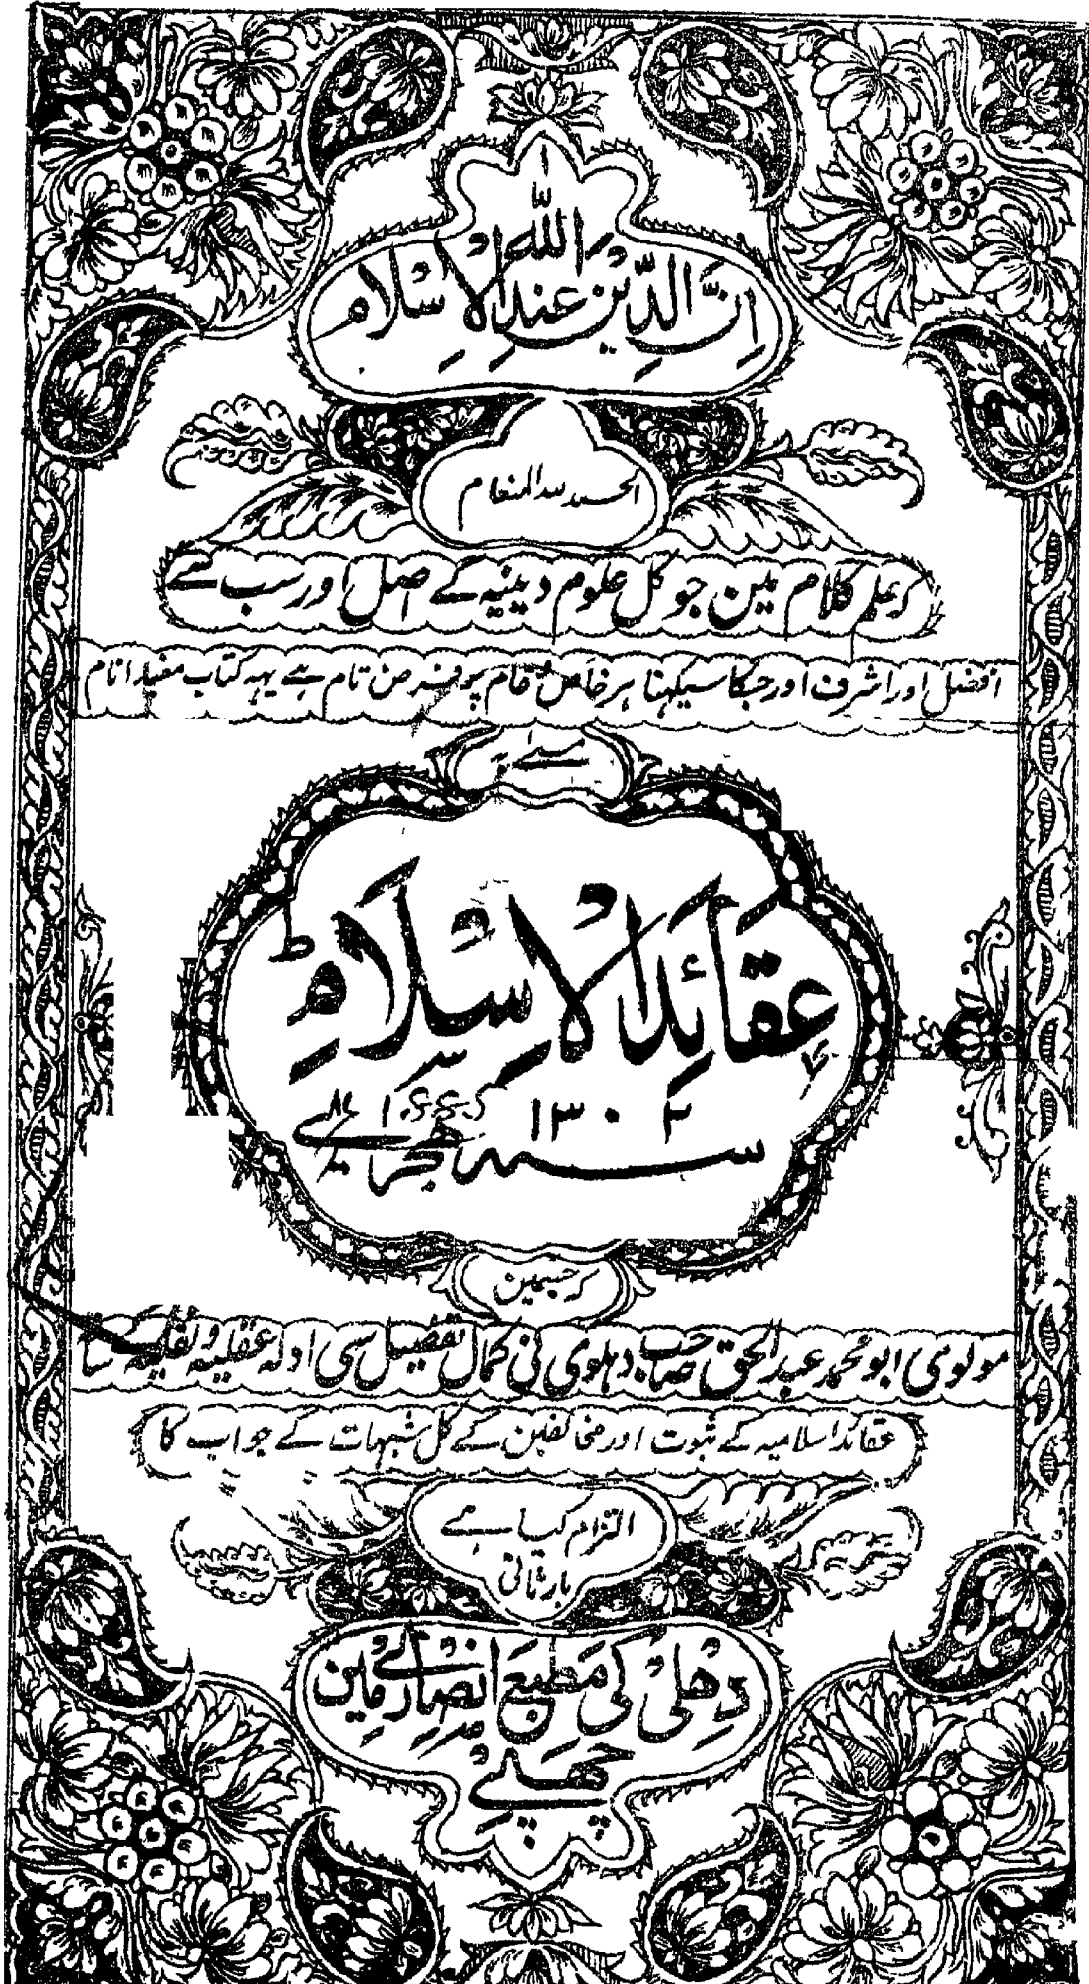 اِنَّ الدِّیْنَ عِنْدَ اللّٰهِ الْاِسْلَامِ
الحمد للہ المنعام
کہ علم کلام مین جو کل علوم دینیہ کے اصل اور سب سے
افضل اور اشرف اور جسکا سیکہنا ہر خاص و عام پر فرض تام ہے یہہ کتاب مفید انام
مسمے بہ
عقائد الاسلام
۱۳۰۲
سنہ ہجرے
کہ جسمین
مولوی ابو محمد عبد الحق صاحب دہلوی نی کمال تفصیل سی ادلہ عقلیہ و نقلیہ سے
عقائد اسلامیہ کے ثبوت اور مخالفین کے کل شبہات کے جواب کا
التزام کیا ہے
بار ثانی
دہلی کی مطبع انصارے مین
چھپے